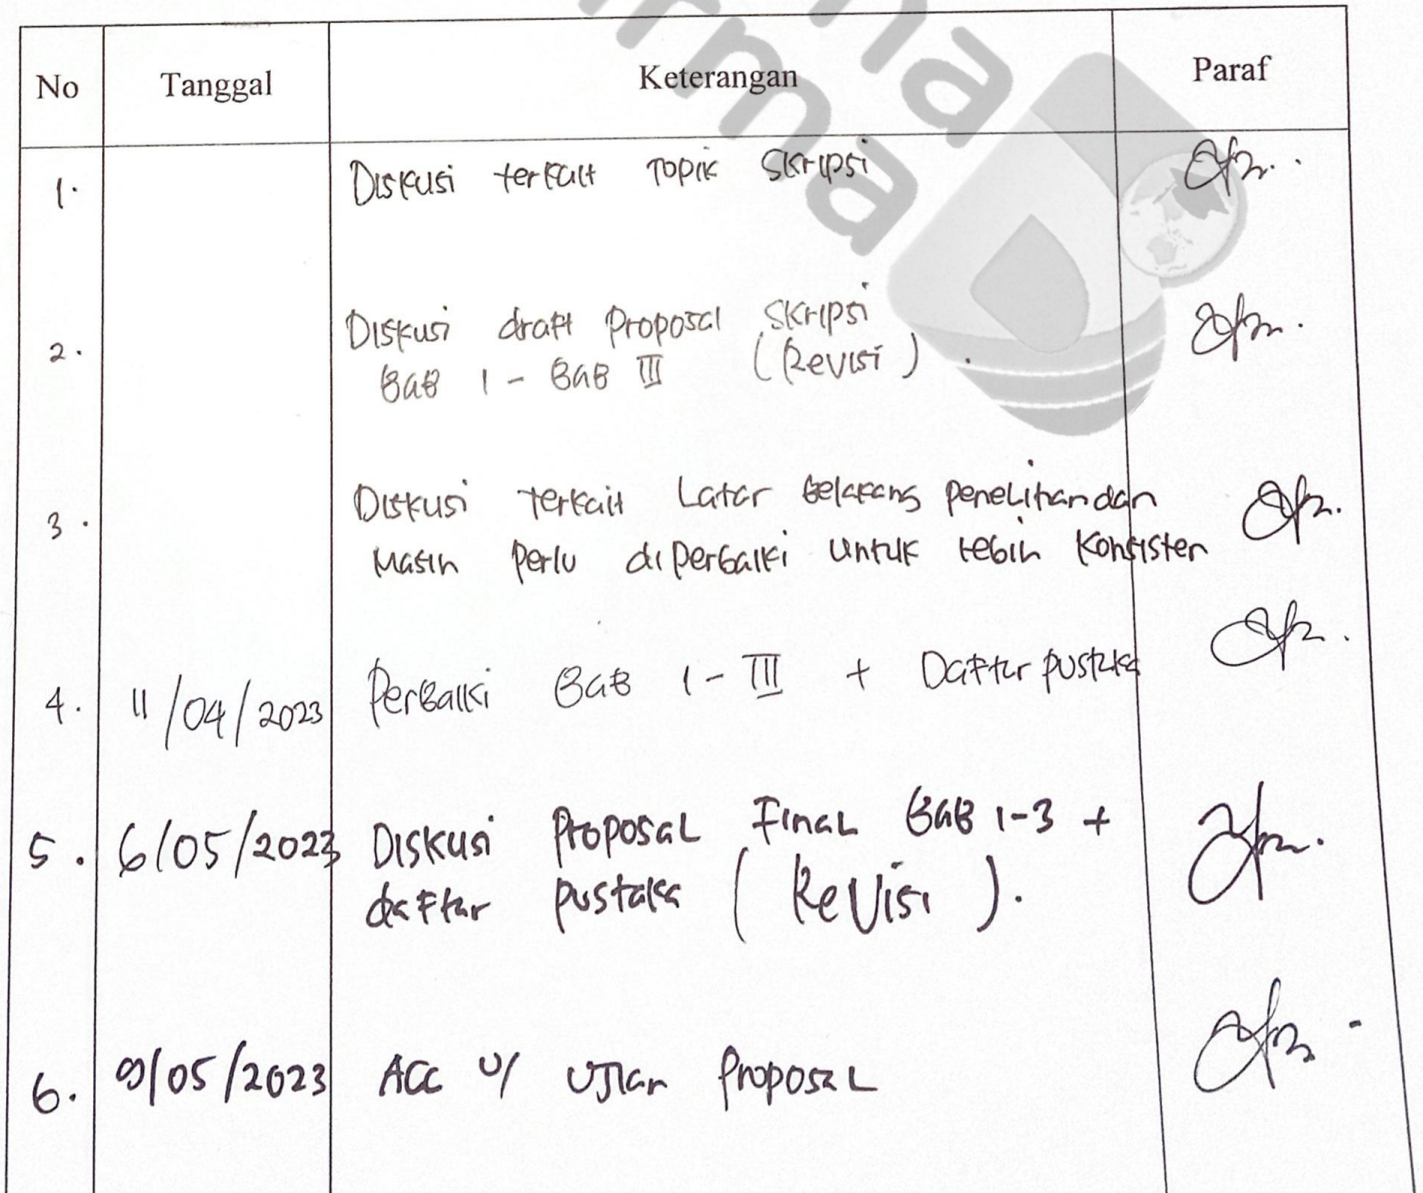 No Tanggal Keterangan Paraf
1. Diskusi terkait Topik Skripsi
2. Diskusi draft Proposal Skripsi
Bab 1 - Bab III (Revisi).
3. Diskusi terkait Latar belakang penelitian dan
masih perlu diperbaiki untuk lebih konsisten
4. 11/04/2023 Perbaiki Bab 1 - III + Daftar pustaka
5. 6/05/2023 Diskusi Proposal Final Bab 1-3 +
daftar pustaka (Revisi).
6. 9/05/2023 Acc u/ Ujian Proposal